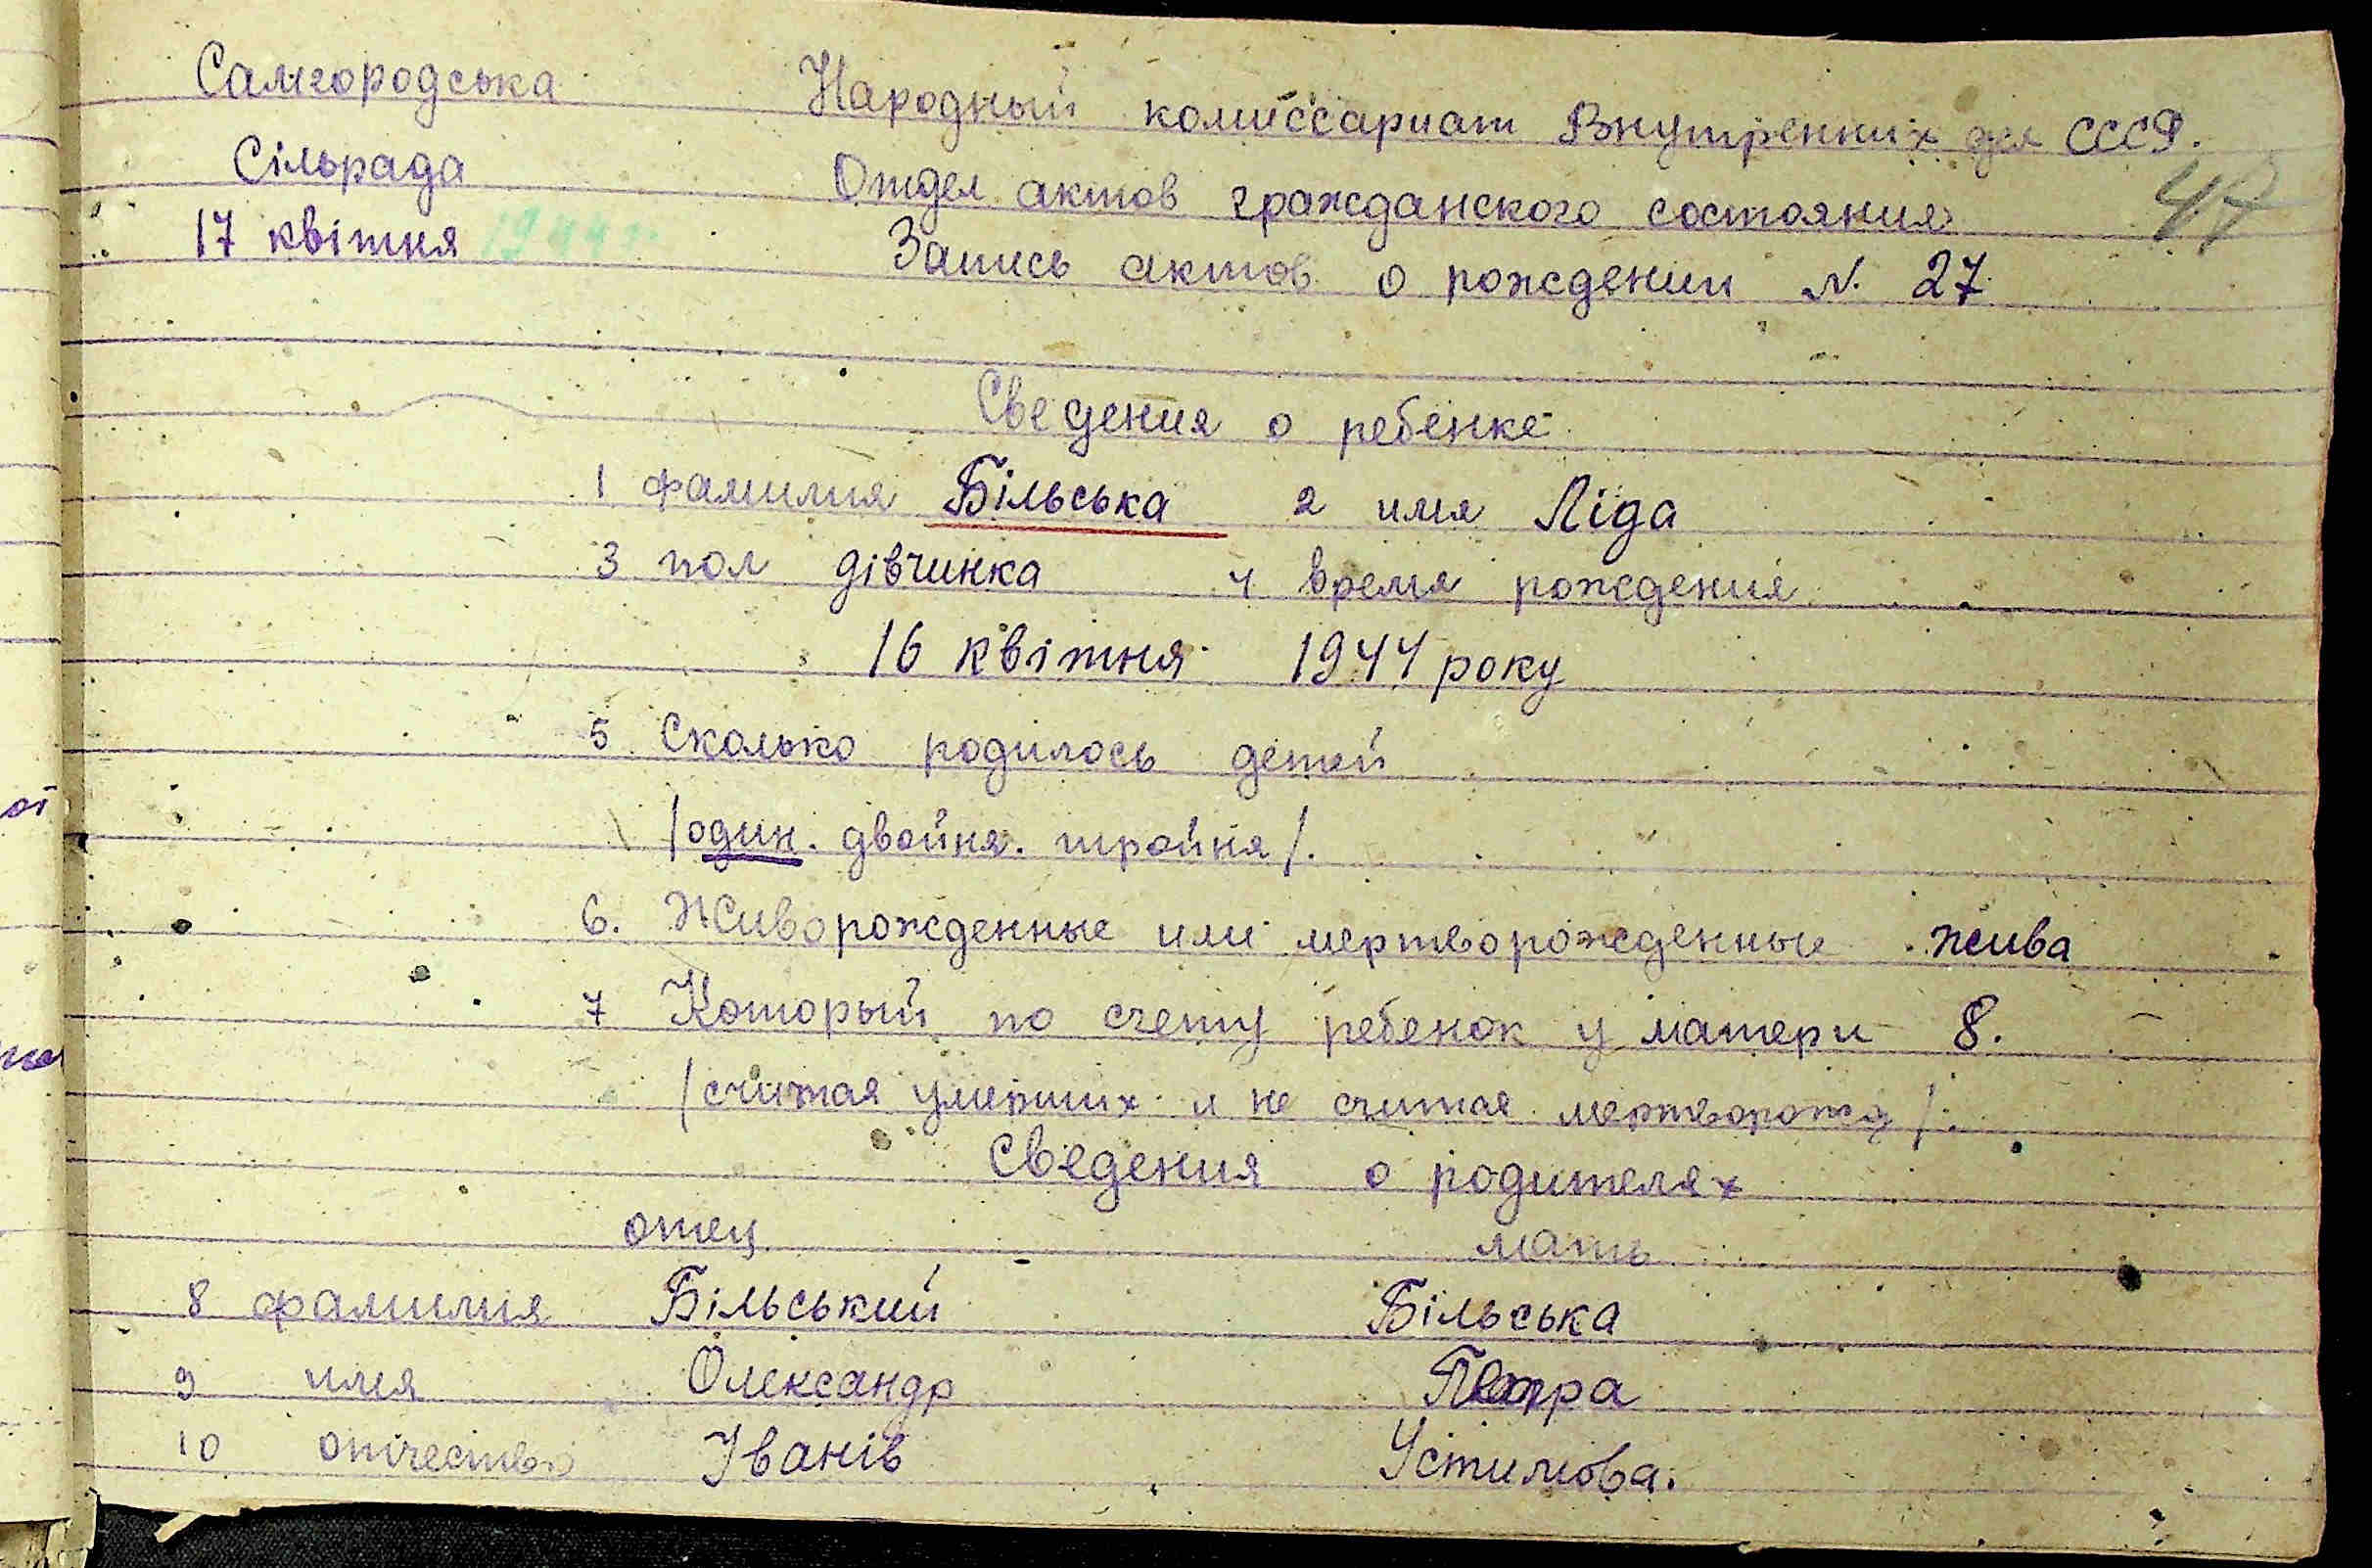 Самгородська Народный комиссариат Внутренних дел СССР.
Сільрада Отдел актов гражданского состояния 47
17 квітня 1944 г. Запись актов о рождении N. 27
Сведения о ребенке
1 фамилия Більська 2 имя Ліда
3 пол дівчинка 4 время рождения
16 квітня 1944 року
5 Сколько родилось детей
/один. двойня. тройня/.
6. Живорожденные или мертворожденные жива
7 Который по счету ребенок у матери 8.
/считая умерших и не считая мертворожд/.
Сведения о родителях
отец мать
8 фамилия Більський Більська
9 имя Олександр
10 отчество Іванів Устимова.